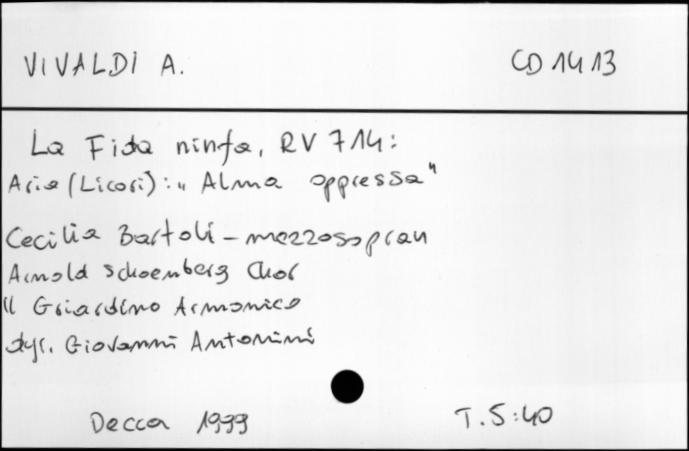 VIVALDI A. CD 1413
La Fida ninfa, RV 714:
Aria (Licori): „Alma oppressa"
Cecilia Bartoli - mezzosopran
Arnold Schoenberg Chor
Il Griardino Armonico
dyr. Giovanni Antonini
Decca 1999 T. 5:40